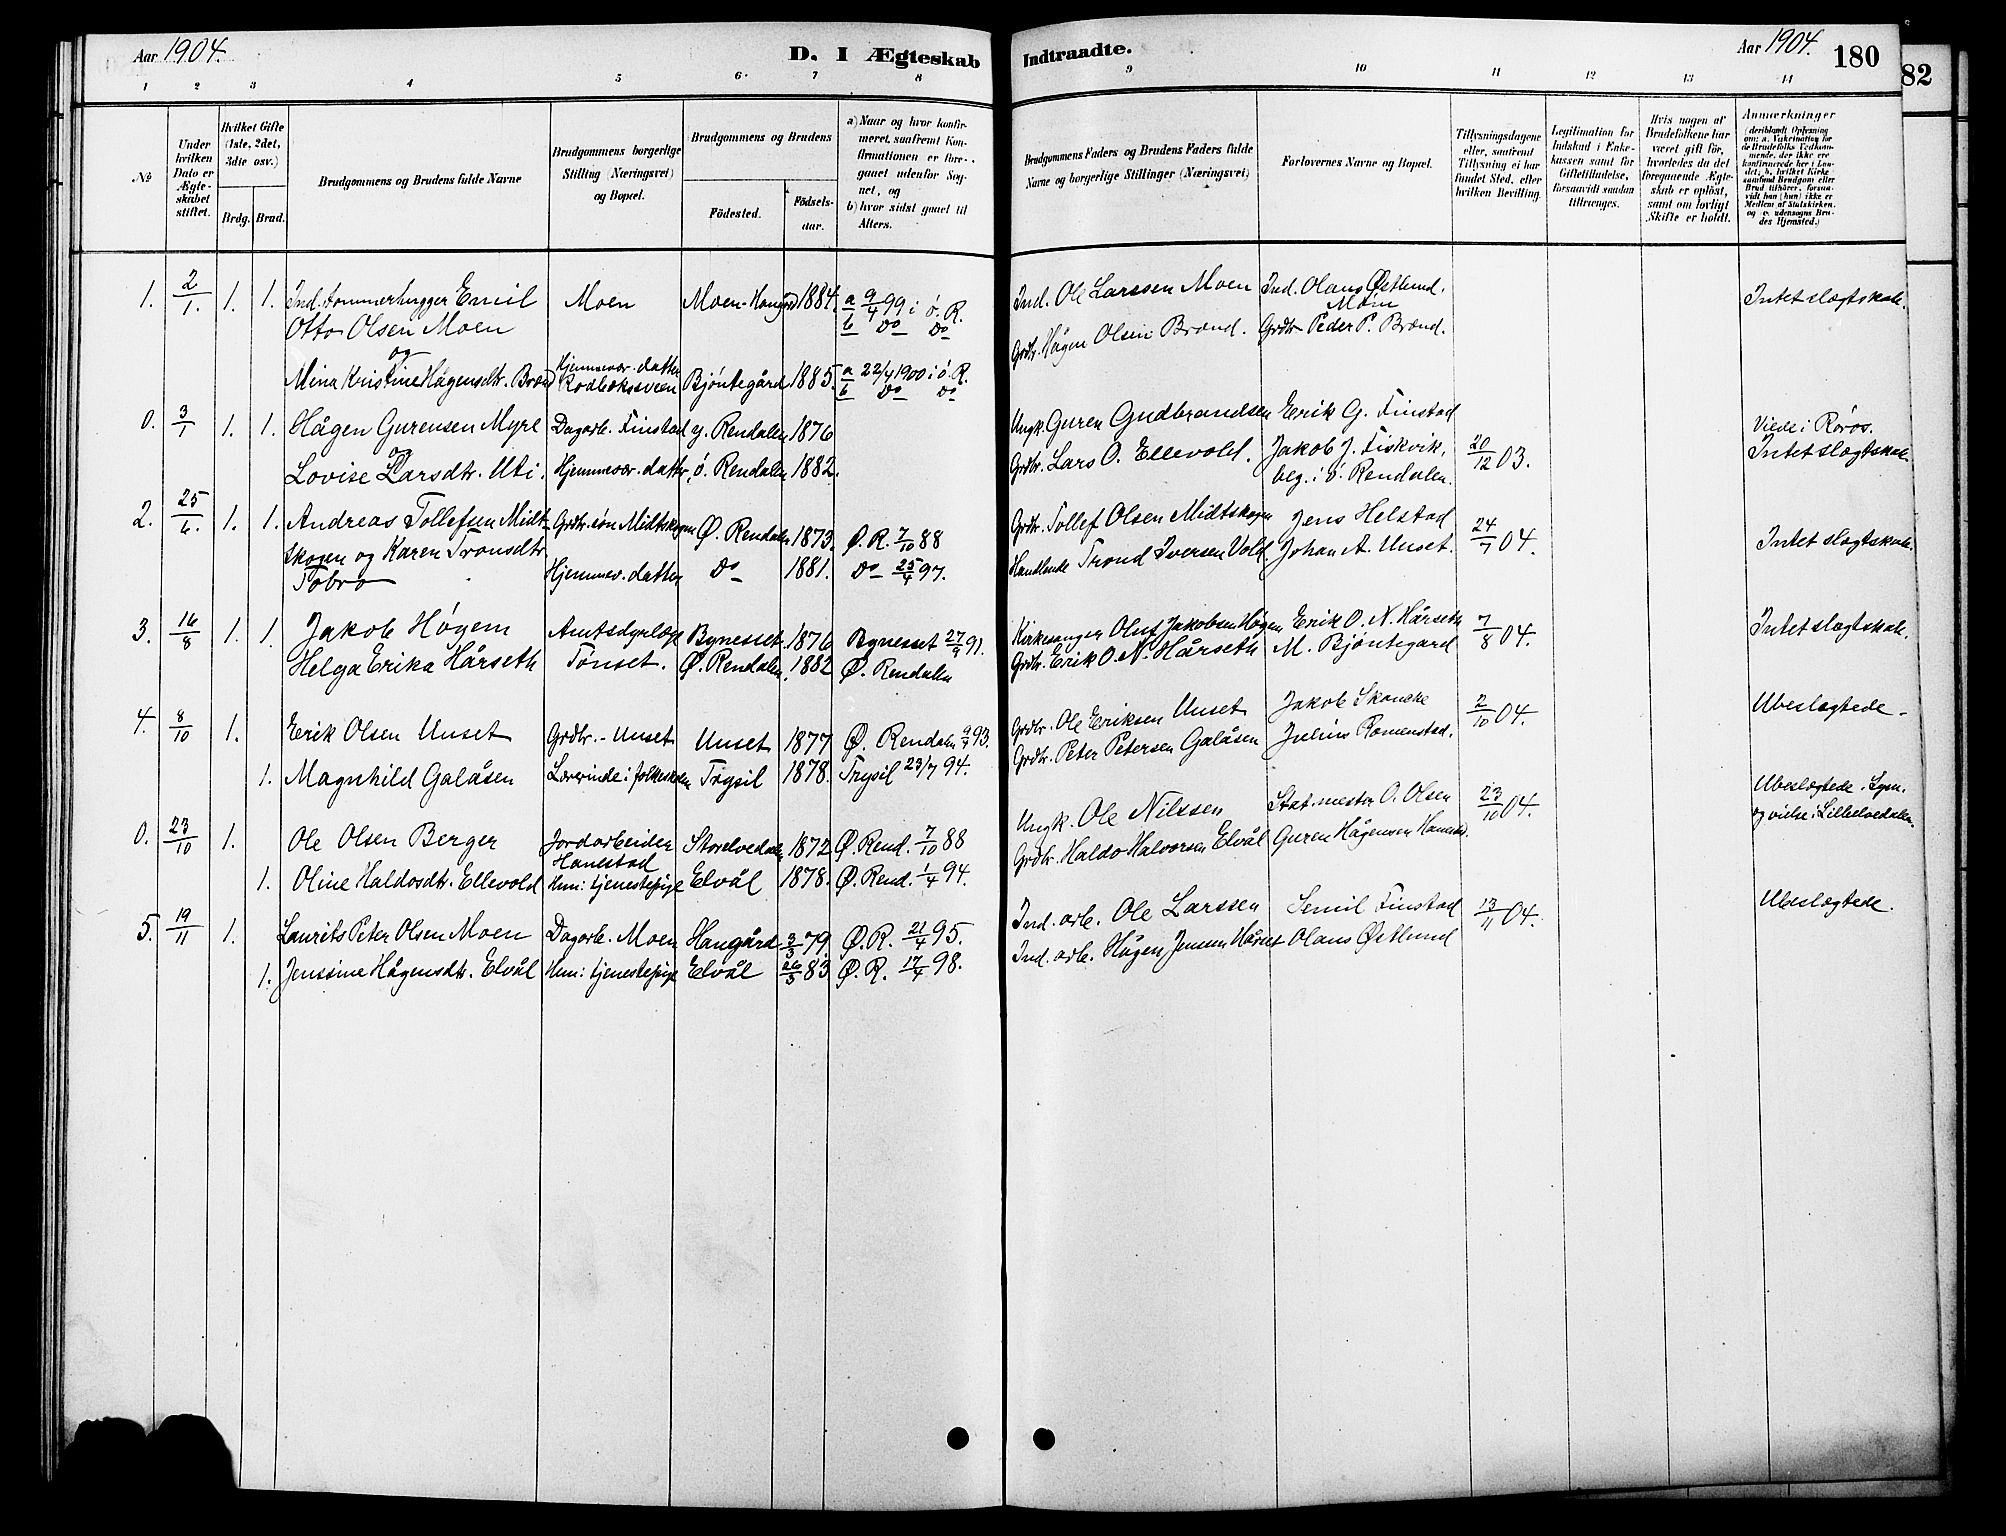 Aar 1904.
D. I Ægteskab
1 2 3 4 5 6. 7 8
No
Under hvilken Dato er Ægteskabet stiftet.
Hvilket Gifte (1ste, 2det, 3die osv.)
Brdg. Brud.
Brudgommens og Brudens fulde Navne
Brudgommens borgerlige Stilling (Næringsvei) og Bopæl.
Brudgommens og Brudens
Födested.
Födsels-aar.
a) Naar og hvor konfirmeret, saafremt Konfirmationen er foregaaet udenfor Sognet, og
b) hvor sidst gaaet til Alters.
1. 2/1. 1. 1. Ind. tømmerhugger Emil Moen Moen-Hangård 1884. a 9/4 99 i ö. R.
Otto Olsen Moen b Do Do
og
Mina Kristine Hågensdtr. Brænd Hjemmevær. datter Rodbæksveen Bjöntegård 1885. a 22/4 1900 i ö. R.
b Do Do
0. 3/1 1. 1. Hågen Gurensen Myre Dagarb. Finstad y. Rendalen 1876
og
Lovise Larsdtr. Uti. Hjemmevær. datter, ö. Rendalen 1882.
2. 25/6. 1. 1. Andreas Tollefsen Midt- Grdbr. sön Midtskogen Ø. Rendalen 1873. Ø. R. 7/10 88
skogen og Karen Tronsdtr.
Tobro Hjemmev. datter Do 1881. Do 25/4 97.
3. 16/8 1. 1. Jakob Høgem Amtsdyrlæge Bynesset 1876 Bynesset 27/9 91.
Helga Erika Hårseth Tönset. Ø. Rendalen, 1882 Ø. Rendalen
4. 8/10 1. Erik Olsen Unset Grdbr. - Unset Unset 1877 Ø. Rendalen 9/4 93.
1. Magnhild Galåsen Lærerinde i folkeskolen Trysil 1878. Trysil 23/7 94.
0. 23/10 1. Ole Olsen Berger Jordarbeider Hanestad Storelvedalen 1872 Ø. Rend. 7/10 88
1. Oline Haldosdtr. Ellevold Hun: tjenestepige Elvål 1878. Ø. Rend. 1/4 94.
5. 19/11 1. Laurits Peter Olsen Moen Dagarb. Moen Hangård 3/3 79. Ø. R. 21/4 95.
1. Jenssine Hågensdtr. Elvål Hun: tjenestepige Elvål 26/3 83 Ø. R. 17/4 98.
Indtraadte.
Aar 1904.
180
82
9 10 11 12 13 14
Brudgommens Faders og Brudens Faders fulde Navne og borgerlige Stillinger (Næringsvei)
Forlovernes Navne og Bopæl.
Tillysningsdagene eller, saafremt Tillysning ei har fundet Sted, efter hvilken Bevilling.
Legitimation for Indskud i Enkekassen samt for Giftetilladelse, forsaavidt saadan tiltrænges.
Hvis nogen af Brudefolkene har været gift för, hvorledes da det foregaaende Ægteskab er oplöst, samt om lovligt Skifte er holdt.
Anmærkninger
(deriblandt Oplysning om: a. Vakcination for de Brudefolks Vedkommende, der ikke ere konfirmerede her i Landet; b. hvilket Kirkesamfund Brudgom eller Brud tilhörer, forsaavidt han (hun) ikke er Medlem af Statskirken. og c. udensogns Brudes Hjemsted.)
Ind. Ole Larssen Moen Ind. Olaus Østlund. Intet slægtskab.
Moen
Grdbr. Hågen Olsen Brænd. Grdbr. Peder P. Brænd.
Ungk. Guren Gudbrandsen Erik G. Finstad Viede i Röros.
Grdbr. Lars O. Ellevold. Jakob J. Fiskvik, 20/12 03. Intet slægtskab.
beg. i ö. Rendalen.
Grdbr. Tollef Olsen Midtskogen Jens Helstad 24/7 04. Intet slægtskab.
Handlende Trond Iversen Vold. Johan A. Unset.
Kirkesanger Oluf Jakobsen Høgem Erik O. N. Hårseth 7/8 04. Intet slægtskab.
Grdbr. Erik O. N. Hårseth M. Bjöntegard
Grdbr. Ole Eriksen Unset Jakob Skancke 2/10 04. Ubeslægtede -
Grdbr. Peter Petersen Galåsen Julius Romenstad.
Ungk. Ole Nilssen Stat. mester O. Olsen 23/10 04. Ubeslægtede. Lysn.
Grdbr. Haldo Halvorsen Elvål Guren Hågensen Hanestad. og vielse i Lilleelvedalen.
Ind. arb. Ole Larssen Semil Finstad 13/11 04. Ubeslægtede.
Ind. arb. Hågen Jensen Olaus Østlund